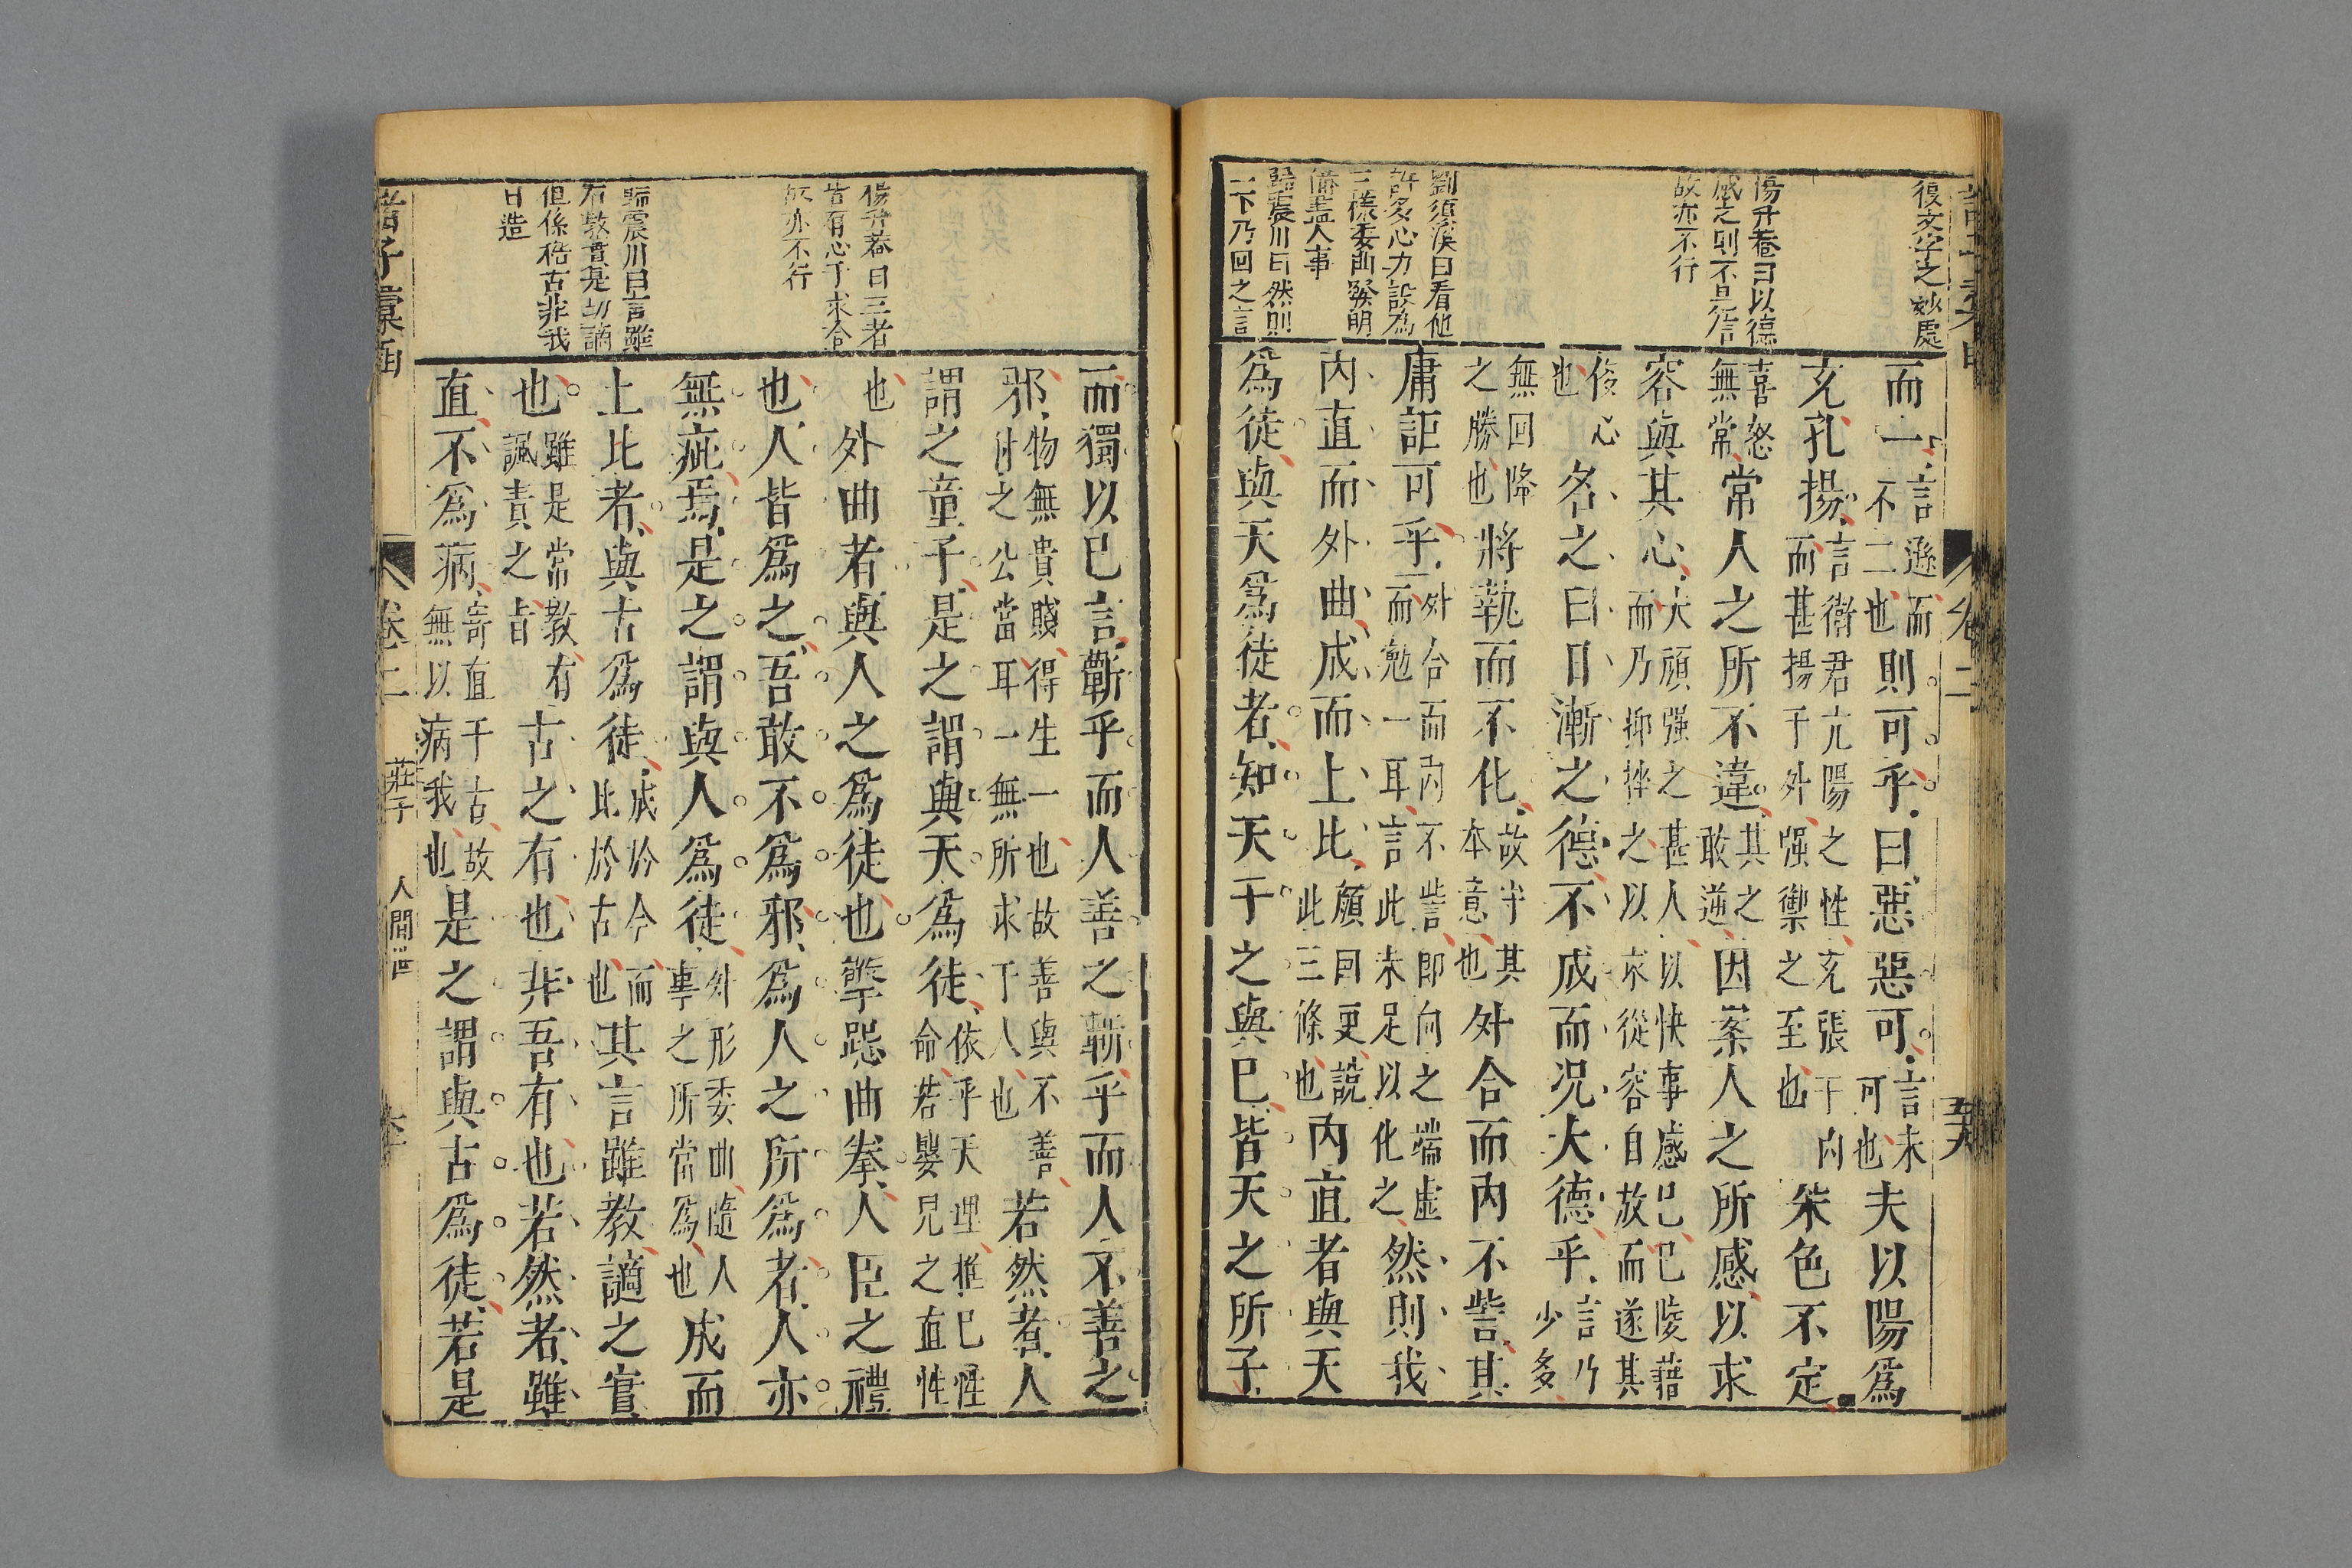 復文字之妙處
楊升菴曰以德
感之則不見信
故亦不行
劉須溪曰看他
許多心力設為
三樣委曲發明
備盡人事
歸震川曰然則
二下乃回之言
而一言遜而不二也則可乎曰惡惡可言未可也夫以陽爲
充孔揚言衞君亢陽之性充張于內而甚揚于外强禦之至也采色不定
喜怒無常常人之所不違其之敢逆因案人之所感以求
容與其心大頑强之甚人以快事感己己陵藉而乃抑挫之以求從容自放而遂其
侈心也名之曰日漸之德不成而况大德乎言乃少多
無回降之勝也將執而不化故守其本意也外合而內不訾其
庸詎可乎外合而內不訾即向之端虛而勉一耳言此未足以化之然則我
內直而外曲成而上比顏回更說此三條也內直者與天
爲徒與天爲徒者知天子之與己皆天之所子
卷二
楊升菴曰三者
皆有心于求合
故亦不行
歸震川曰言雖
有教責是切謫
但係稽古非我
日造
而獨以己言蘄乎而人善之蘄乎而人不善之
邪物無貴賤得生一也故善與不善付之公當耳一無所求于人也若然者人
謂之童子是之謂與天爲徒依乎天理推己性命若嬰兒之直性
也外曲者與人之爲徒也擎跽曲拳人臣之禮
也人皆爲之吾敢不爲邪爲人之所爲者人亦
無疵焉是之謂與人爲徒外形委曲隨人事之所當爲也成而
上比者與古爲徒成於今而比於古也其言雖教讁之實
也雖是常教有諷責之旨古之有也非吾有也若然者雖
直不爲病寄直于古故無以病我也是之謂與古爲徒若是
諸子彙函
卷二
莊子
人間世